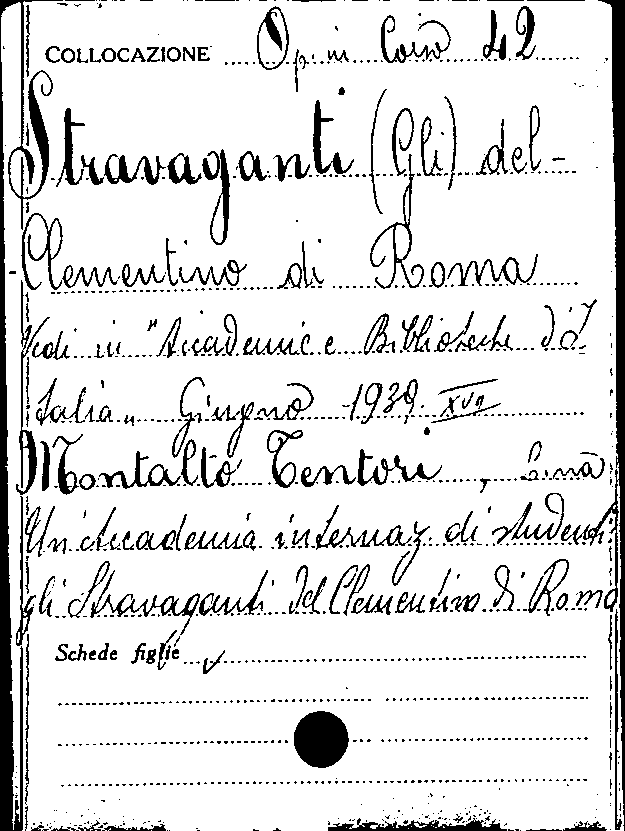 COLLOCAZIONE Op. in Corso 42
Stravaganti (Gli) del
Clementino di Roma
Vedi in "Accademie e Biblioteche d'I
talia" Giugno 1939 XVII
Montalto Tentori, Lina
Un'Accademia internaz. di studenti:
gli Stravaganti del Clementino di Roma
Schede figlie